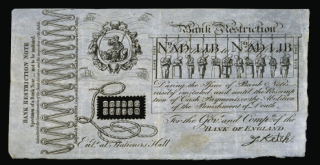 BANK RESTRICTION NOTE
Specimen of a Bank Note
Bank Restriction
No. AD. LIB. No. AD. LIB
During the Issue of Bank Notes
easily imitated, and until the Resumption
of Cash Payments, or the Abolition
of the Punishment of Death
For the Govr. and Compa. of the
BANK OF ENGLAND.
J. Ketch.
Entd. at Stationers Hall